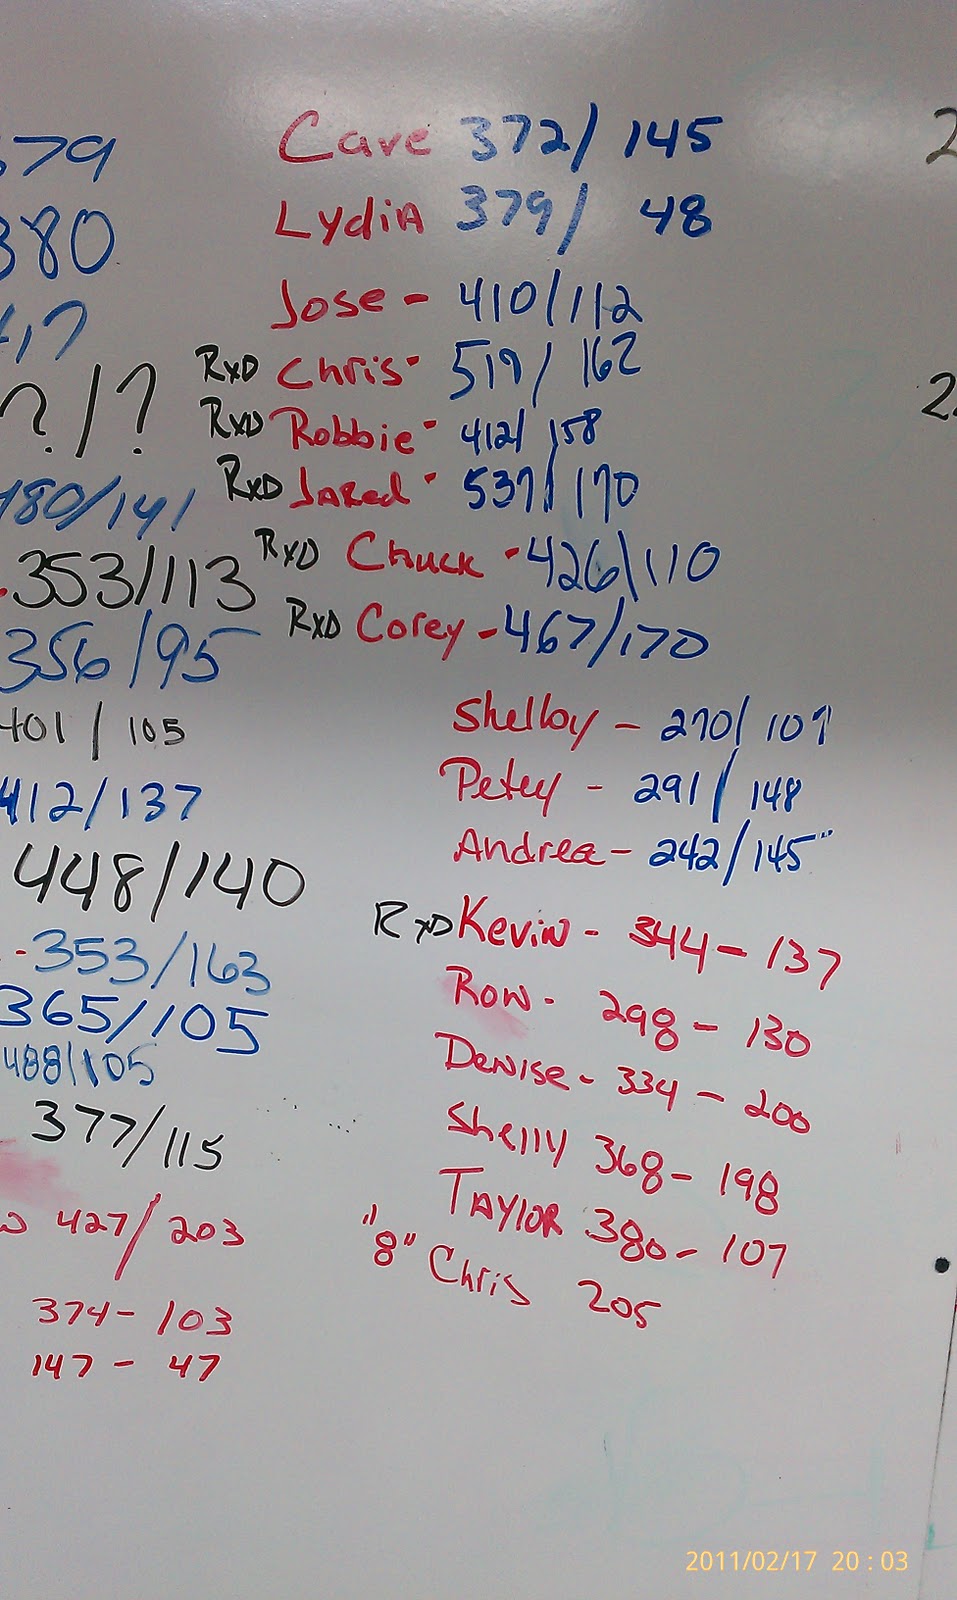 79
380
17
?/?
480/141
353/113
356/95
401/105
412/137
448/140
-353/163
365/105
488/105
377/115
427/203
374-103
147-47
Cave 372/145
Lydia 379/ 48
Jose - 410/112
RxD Chris - 519/ 162
RxD Robbie - 412/ 158
RxD Jared - 537/ 170
RxD Chuck - 426/110
RxD Corey - 467/170
Shelby - 270/ 107
Petey - 291/ 148
Andrea - 242/145
RxD Kevin - 344-137
Row - 298-130
Denise - 334-200
Shelly 368-198
TAYLOR 380-107
"8" Chris 205
2011/02/17 20:03